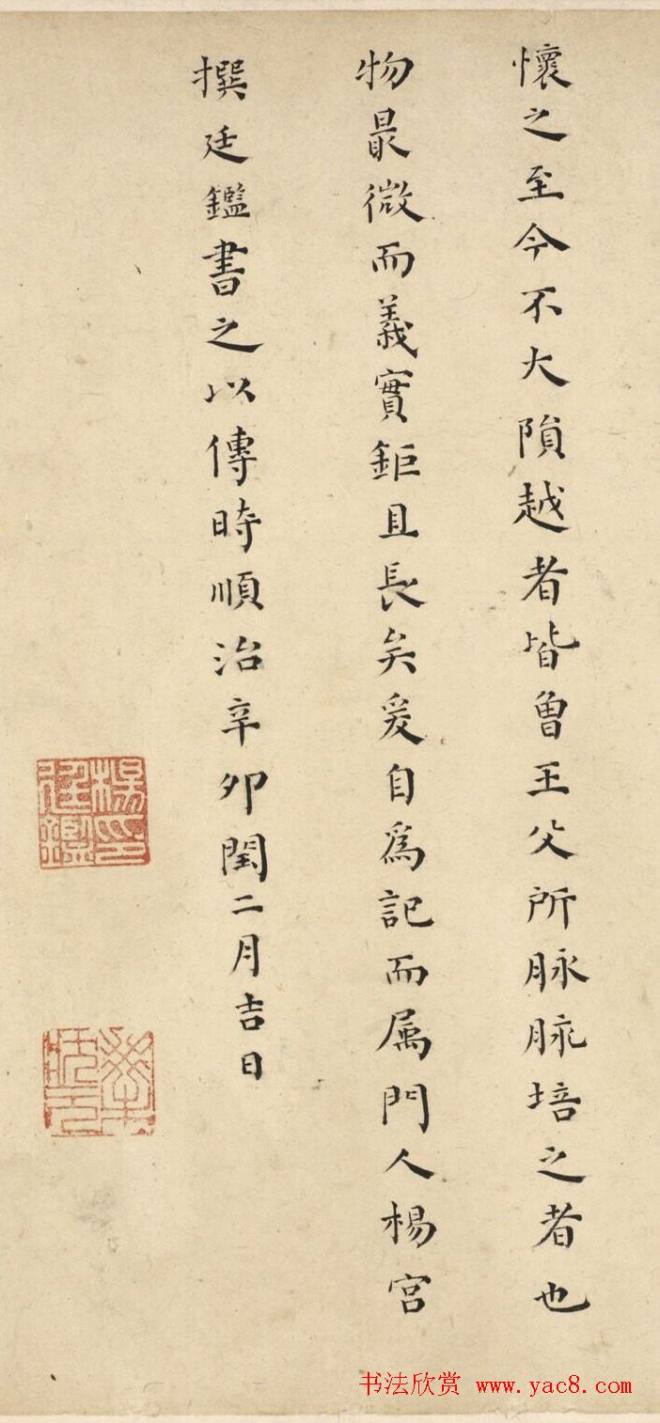 懷之至今不大隕越者皆曾王父所脉脉培之者也
物最微而義實鉅且長矣爰自為記而属門人楊宮
撰廷鑑書之以傳時順治辛卯閏二月吉日
楊印廷鑑
書法欣赏 www.yac8.com